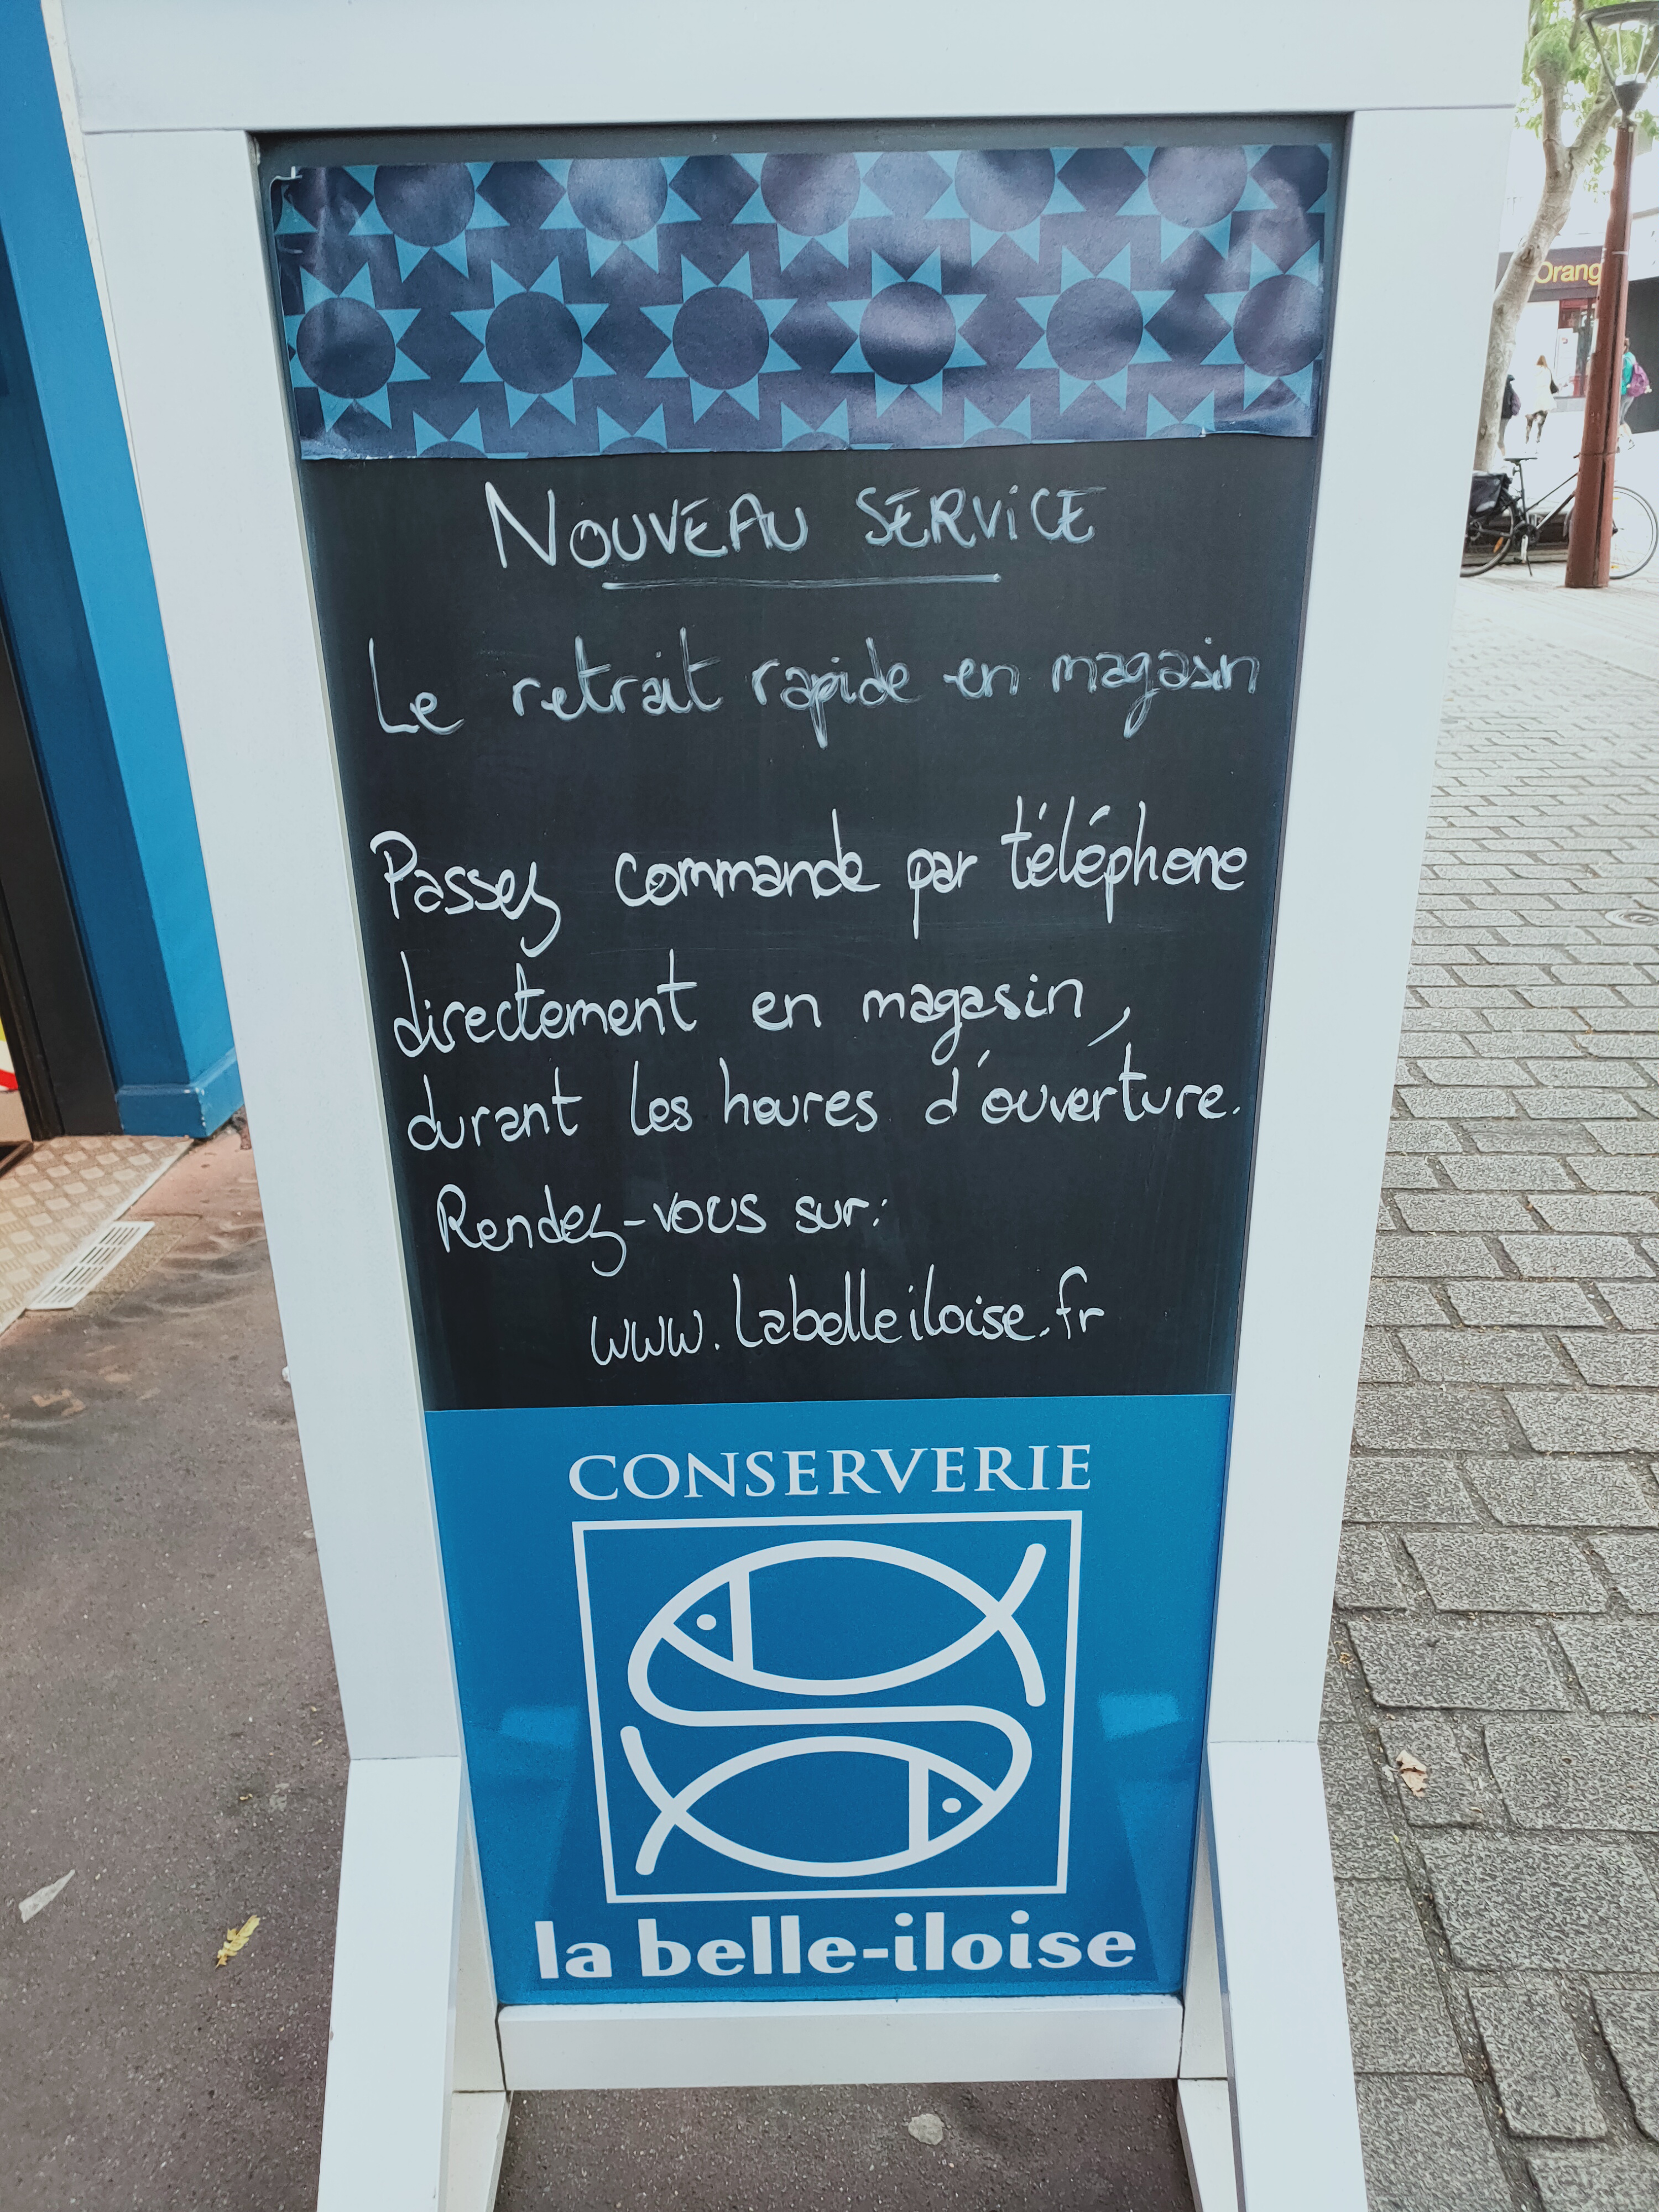 NOUVEAU SERVICE
Le retrait rapide en magasin
Passez commande par téléphone
directement en magasin,
durant les heures d'ouverture.
Rendez-vous sur:
www.labelleiloise.fr
CONSERVERIE
la belle-iloise
Orang